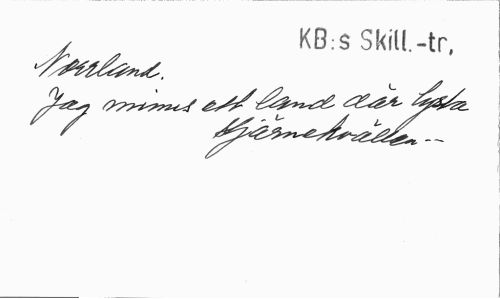 KB:s Skill.-tr.
Norrland.
Jag minns ett land där lysta
stjärnekvällen--